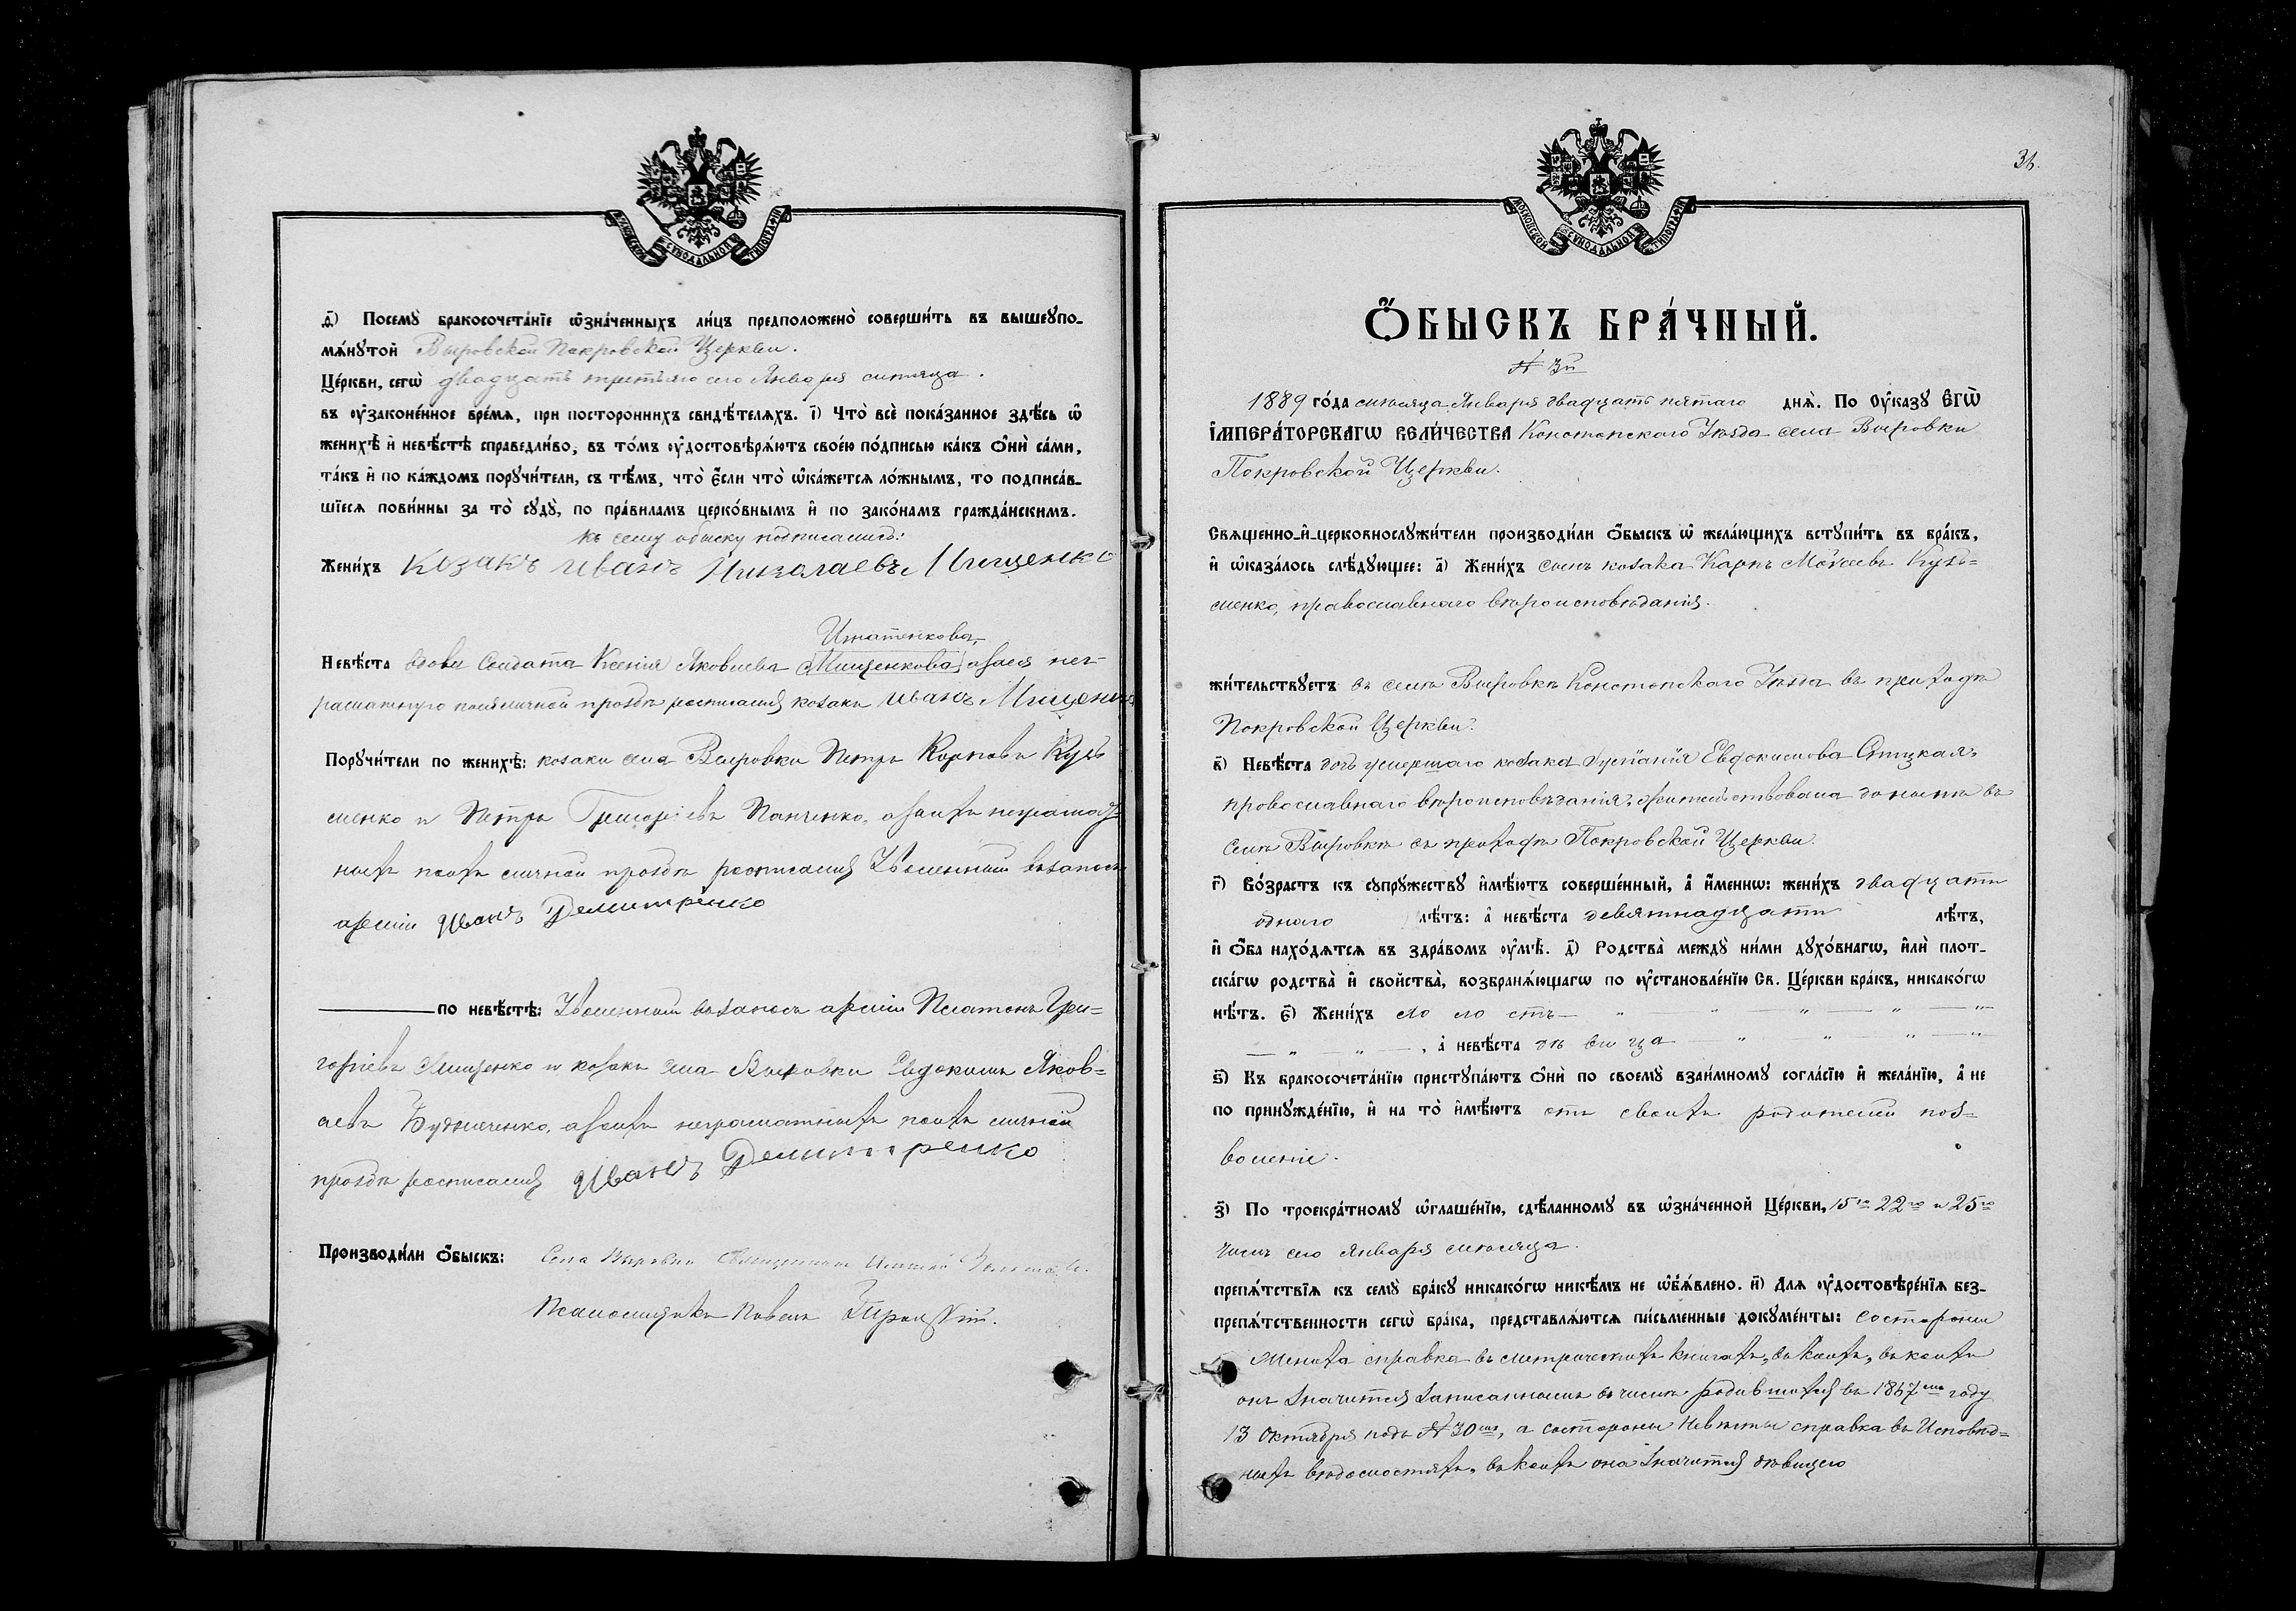 МОСКОВСКОЙ СѴНОДАЛЬНОЙ ТИПОГРАФІИ
д҃і) Посемꙋ̀ бракосочета́нїе ѡ҆зна́ченныхъ ли́цъ предположено̀ соверши́ть въ вышеꙋпо-
мѧ́нꙋтой Выровской Покровской Церкви.
Це́ркви, сегѡ̀ двадцать третьяго сего Января месяца.
въ ᲂу҆законе́нное вре́мѧ, при посторо́ннихъ свидѣ́телѧхъ. і҃) Что̀ всѐ пока́занное здѣ́сь ѡ҆
женихѣ̀ и҆ невѣ́стѣ справедли́во, въ то́мъ ᲂу҆достовѣрѧ́ютъ свое́ю по́дписью ка́къ ѻ҆нѝ са́ми,
та́къ и҆ по ка́ждомъ порꙋчи́тели, съ тѣ́мъ, что̀ є҆́сли что̀ ѡ҆ка́жетсѧ ло́жнымъ, то подписа́в-
шїесѧ пови́нны за то̀ сꙋдꙋ̀, по пра́виламъ церко́внымъ и҆ по зако́намъ гражда́нскимъ.
къ сему обыску подписались:
Жени́хъ Козакъ Иванъ Николаевъ Мищенко
Игнатенкова,
Невѣ́ста вдова Солдата Ксенія Яковлева Мищенкова, а за нея нег-
рамотную по ея личной прозьбѣ росписался козакъ Иванъ Мищенко
Порꙋчи́тели по женихѣ̀: козаки села Выровки Петръ Карповъ Кузь
менко и Петръ Григорьевъ Панченко, а за ихъ неграмот-
ныхъ по ихъ личной прозьбѣ росписался Уволенный въ запасъ
арміи Иванъ Демитренко
по невѣ́стѣ: Уволенный въ запасъ арміи Платонъ Гри-
горіевъ Мищенко и козакъ села Выровки Евдокимъ Яков-
левъ Будниченко, а за ихъ неграмотныхъ по ихъ личной
прозьбѣ росписался Иванъ Демитренко
Производи́ли ѻ҆́быскъ: Села Выровки Священникъ
Псаломщикъ Павелъ
МОСКОВСКОЙ СѴНОДАЛЬНОЙ ТИПОГРАФІИ
Ѻ҆́БЫСКЪ БРА́ЧНЫЙ.
№ 3й
1889 го́да месяца Января двадцать пятаго днѧ̀. По Оу҆ка́зꙋ Є҆гѡ̀
І҆мпера́торскагѡ Вели́чества Конотопского Уѣзда села Выровки
Покровской Церкви.
Свѧще́нно-и҆-церковнослꙋжи́тели производи́ли ѻ҆́быскъ ѡ҆ жела́ющихъ встꙋпи́ть въ бра́къ,
и҆ ѡ҆каза́лось слѣ́дꙋющее: а҃) Жени́хъ сынъ козака Карпъ Моѵсеевъ Кузь-
менко, православнаго вѣроисповѣданія.
жи́тельствꙋетъ въ селѣ Выровкѣ Конотопского Уѣзда въ приходѣ
Покровской Церкви.
в҃) Невѣ́ста дочь умершаго козака Евдокимова
православнаго вѣроисповѣданія, жительствовала донынѣ въ
селѣ Выровкѣ въ приходѣ Покровской Церкви.
г҃) Во́зрастъ къ сꙋпрꙋ́жествꙋ и҆мѣ́ютъ соверше́нный, а҆ и҆́меннѡ: жени́хъ двадцати
одного лѣ́тъ: а҆ невѣ́ста девятнадцати лѣ́тъ,
и҆ ѻ҆́ба нахо́дѧтсѧ въ здра́вомъ ᲂу҆мѣ̀. д҃) Родства̀ междꙋ̀ ни́ми дꙋхо́внагѡ, и҆лѝ плот-
ска́гѡ родства̀ и҆ сво́йства̀, возбранѧ́ющагѡ по ᲂу҆становле́нїю Св. Це́ркви бра́къ, никако́гѡ
нѣ́тъ. є҃) Жени́хъ холостъ
а҆ невѣ́ста дѣвица
ѕ҃) Къ бракосочета́нїю пристꙋпа́ютъ ѻ҆нѝ по своемꙋ̀ взаи́мномꙋ согла́сїю и҆ жела́нїю, а҆ не
по принꙋжде́нїю, и҆ на то̀ и҆мѣ́ютъ отъ своихъ родителей поз-
воленіе.
з҃) По троекра́тномꙋ ѡ҆глаше́нїю, сдѣ́ланномꙋ въ ѡ҆зна́ченной Це́ркви, 15го 22го и 25го
числъ сего Января месяца.
препѧ́тствїѧ къ семꙋ̀ бра́кꙋ никако́гѡ никѣ́мъ не ѡ҆б̾ѧ́влено. и҃) Длѧ ᲂу҆достовѣре́нїѧ без-
препѧ́тственности сегѡ̀ бра́ка, представлѧ́ютсѧ пи́сьменные докꙋме́нты: состороны
Жениха справка въ метрическихъ книгахъ, въ коихъ, въ коихъ
онъ значится записаннымъ въ числѣ родившихся въ 1867мъ году
13 Октября подъ № 30мъ, а состороны Невѣсты справка въ Исповѣд-
ныхъ вѣдомостяхъ, въ коихъ она значится дѣвицею